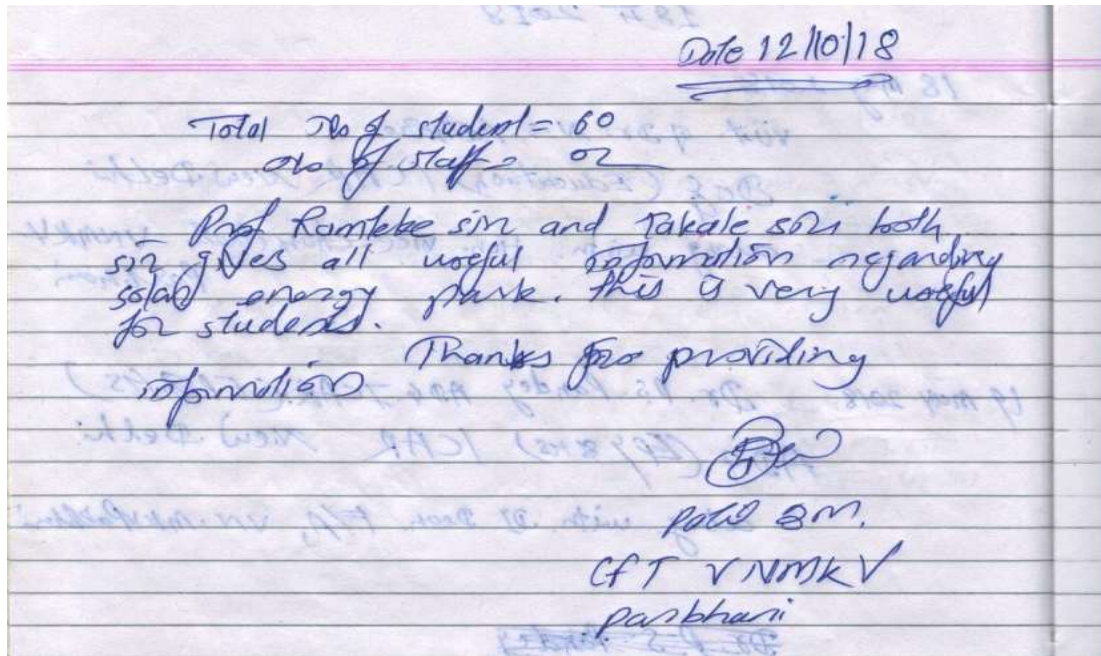 Date 12/10/18
Total No of student = 60
No of staff = 02
- Prof Ramteke sir and Takale sir both
sir gives all useful information regarding
solar energy park. This is very useful
for students.
Thanks for providing
information
Patil S.M.
CFT VNMKV
parbhani